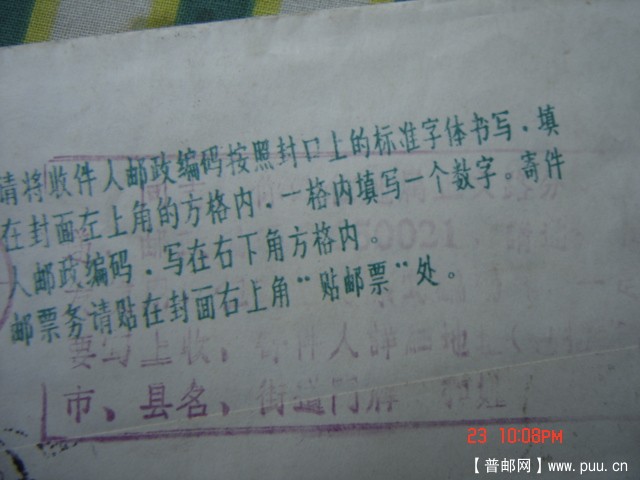 请将收件人邮政编码按照封口上的标准字体书写，填
在封面左上角的方格内，一格内填写一个数字。寄件
人邮政编码，写在右下角方格内。
邮票务请贴在封面右上角“贴邮票”处。
0021，请
要勾上收，寄件人详细地
市、县名、街道门牌
23 10:08PM
【普邮网】www.puu.cn